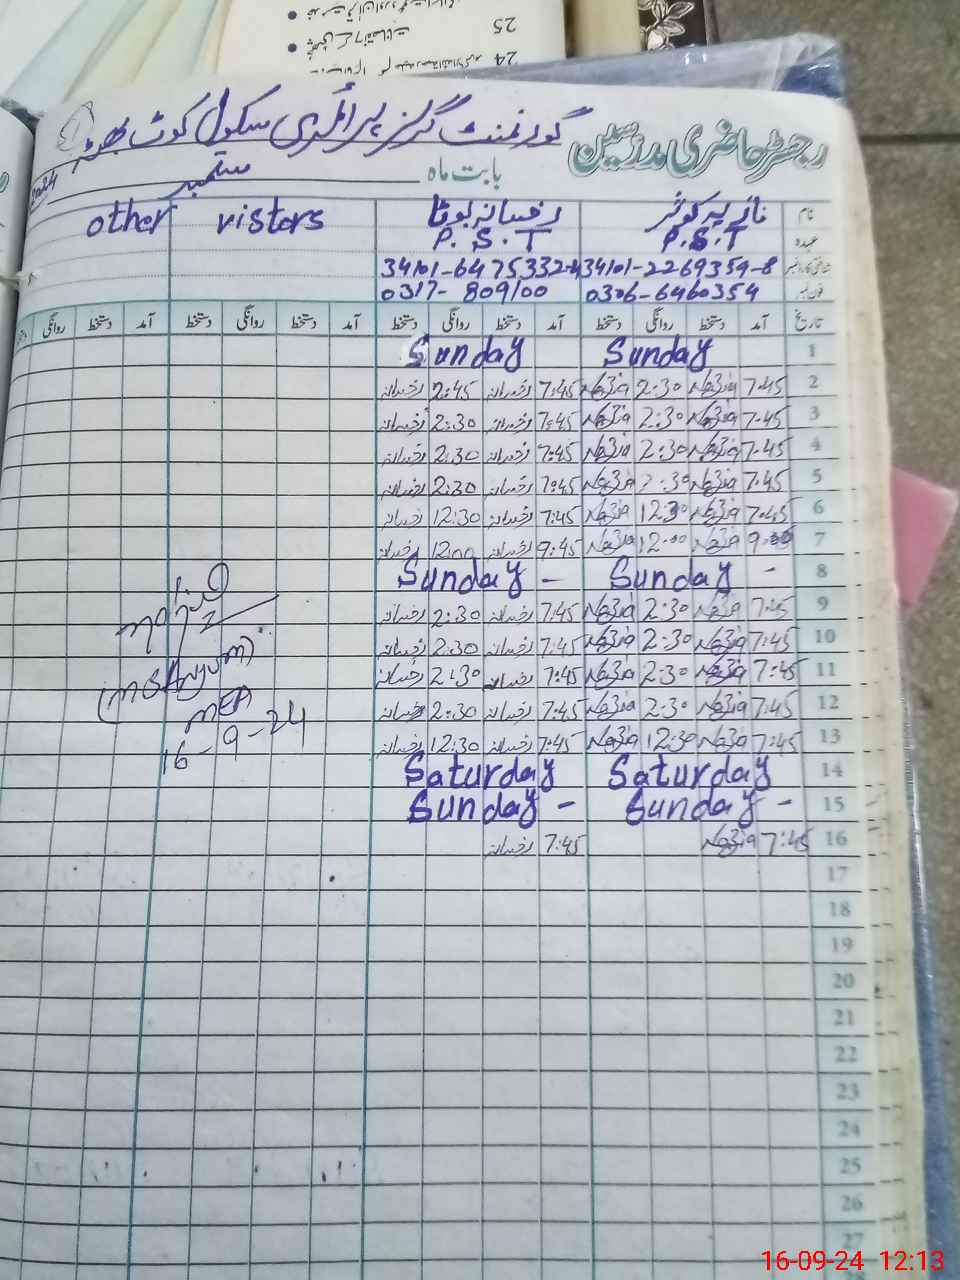 25
24
رجسٹر حاضری مدرسین گورنمنٹ گرلز پرائمری سکول کوٹ بھٹہ
بابت ماہ ستمبر 2024
نام نازیہ کوثر رخسانہ بوٹا other vistors
عہدہ P.S.T P.S.T
شناختی کارڈ نمبر 34101-2269359-8 34101-6475332-
فون نمبر 0306-6460354 0317-809100
تاریخ آمد دستخط روانگی دستخط آمد دستخط روانگی دستخط آمد دستخط روانگی دستخط آمد دستخط روانگی
1 Sunday Sunday
2 7:45 Nazia 2:30 Nazia 7:45 رخسانہ 2:45 رخسانہ
3 7:45 Nazia 2:30 Nazia 7:45 رخسانہ 2:30 رخسانہ
4 7:45 Nazia 2:30 Nazia 7:45 رخسانہ 2:30 رخسانہ
5 7:45 Nazia 2:30 Nazia 7:45 رخسانہ 2:30 رخسانہ
6 7:45 Nazia 12:30 Nazia 7:45 رخسانہ 12:30 رخسانہ
7 Nazia 12:00 Nazia 9:45 رخسانہ 12:00 رخسانہ
8 Sunday - Sunday -
9 7:45 Nazia 2:30 Nazia 7:45 رخسانہ 2:30 رخسانہ
10 7:45 Nazia 2:30 Nazia 7:45 رخسانہ 2:30 رخسانہ
11 7:45 Nazia 2:30 Nazia 7:45 رخسانہ 2:30 رخسانہ
12 7:45 Nazia 2:30 Nazia 7:45 رخسانہ 2:30 رخسانہ
13 7:45 Nazia 12:30 Nazia 7:45 رخسانہ 12:30 رخسانہ
14 Saturday Saturday
15 Sunday - Sunday -
16 7:45 Nazia 7:45 رخسانہ
16-9-24
17
18
19
20
21
22
23
24
25
26
27
16-09-24 12:13